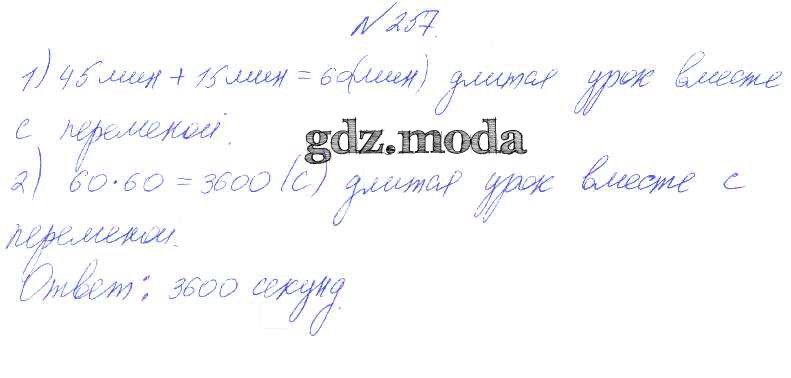 №257.
1) 45 мин + 15 мин = 60(мин) длится урок вместе
с переменой.
gdz.moda
2) 60·60 = 3600 (с) длится урок вместе с
переменой.
Ответ: 3600 секунд.